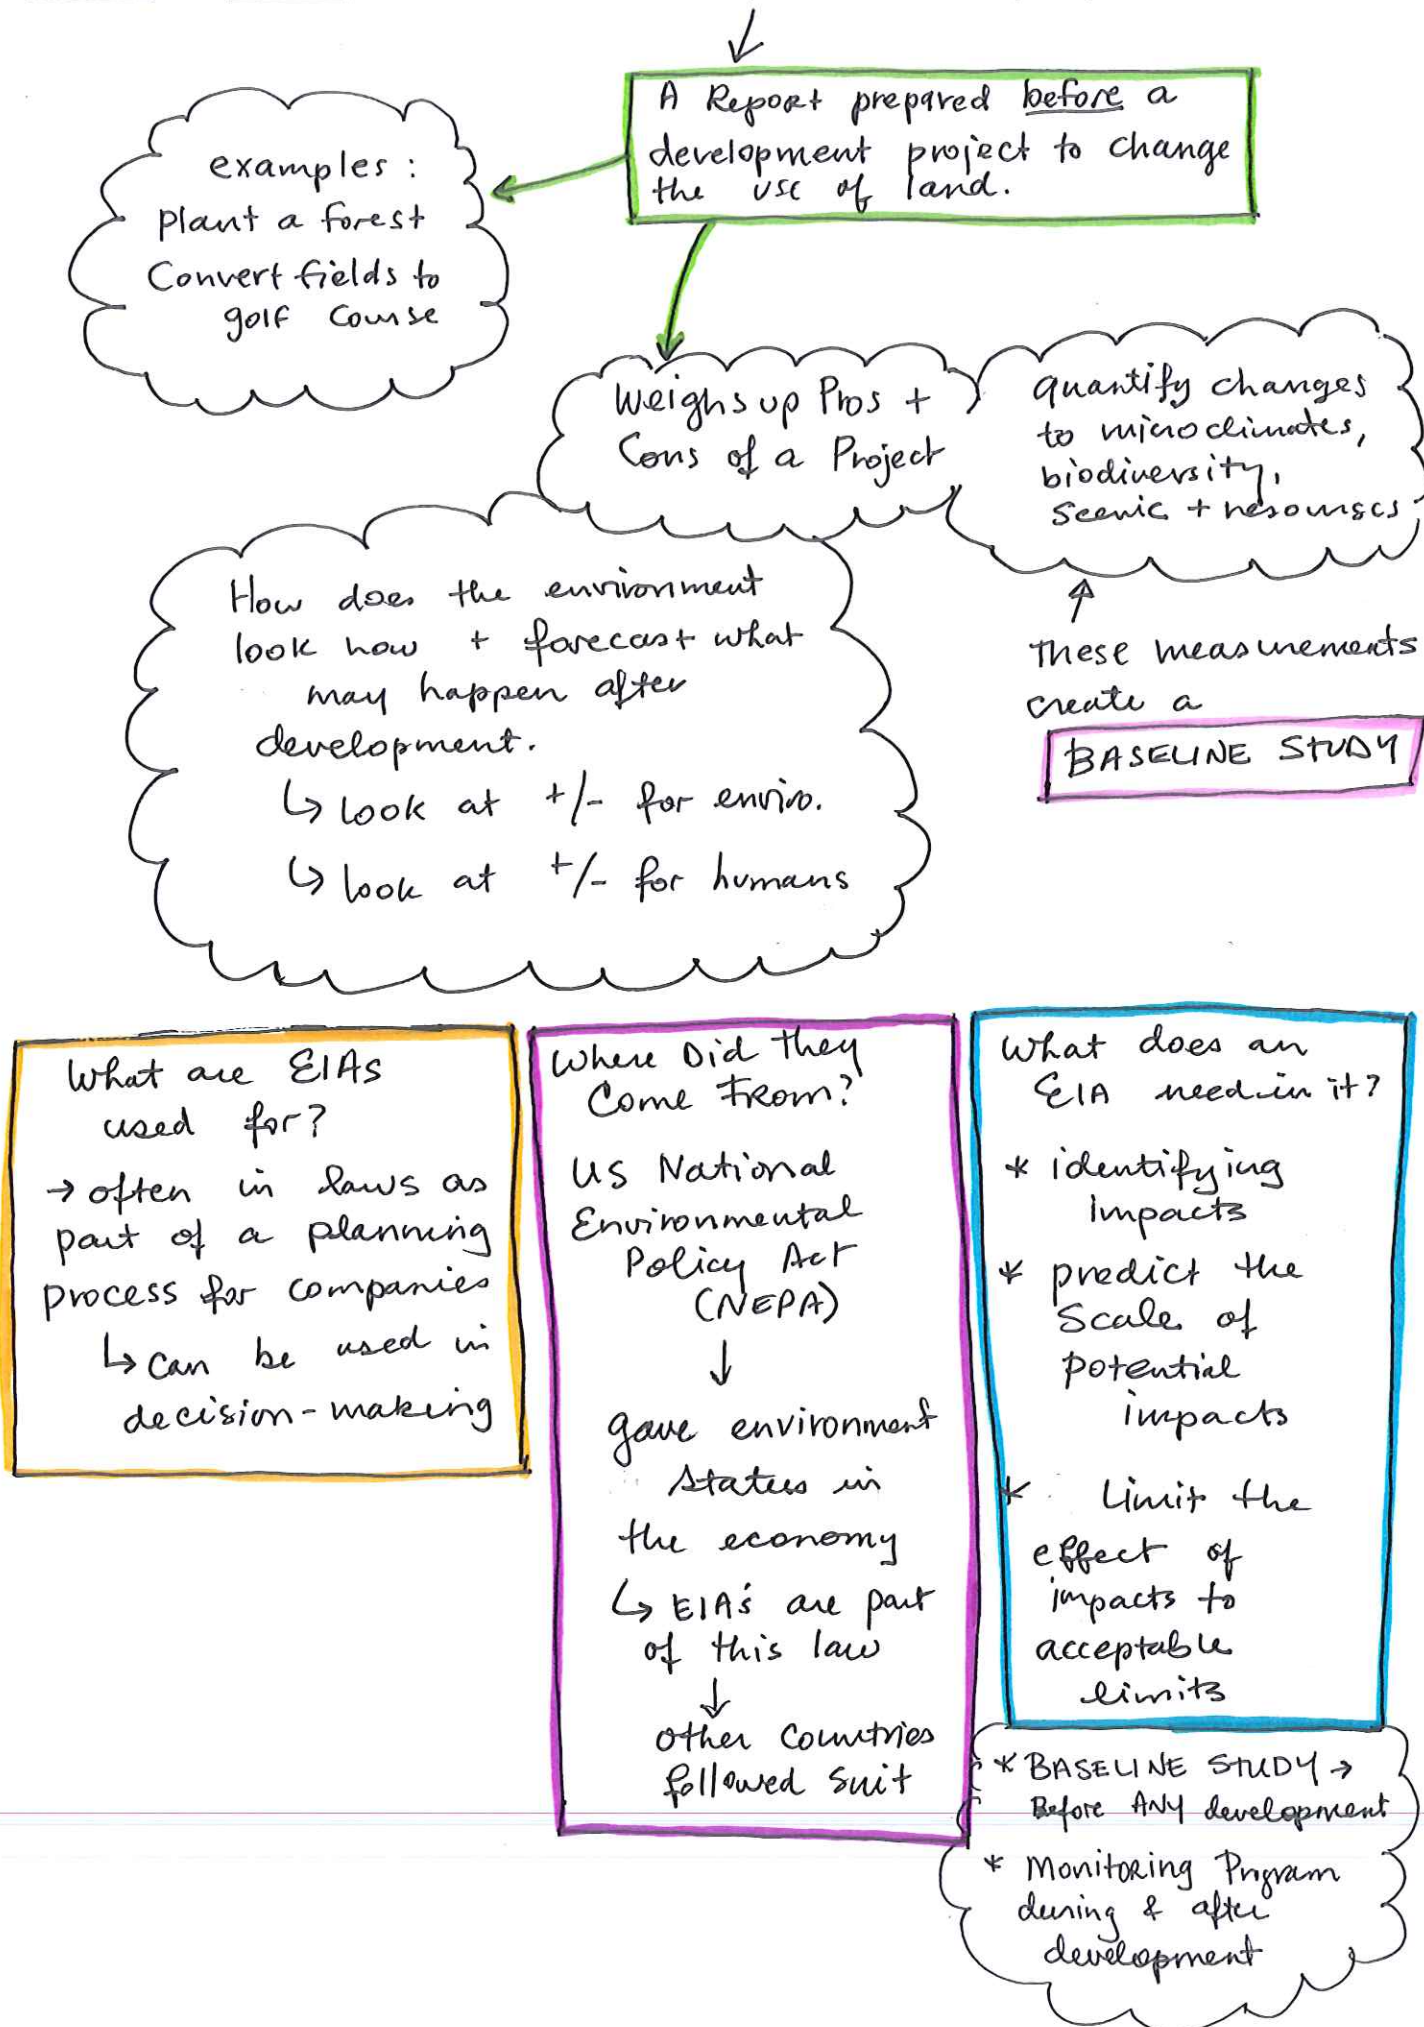 A Report prepared before a
development project to change
the use of land.
examples:
plant a forest
Convert fields to
golf course
Weighs up Pros +
Cons of a Project
quantify changes
to microclimates,
biodiversity,
scenic + resourses
These measurements
create a
BASELINE STUDY
How does the environment
look now + forecast what
may happen after
development.
↳ look at +/- for enviro.
↳ look at +/- for humans
What are EIAs
used for?
→ often in laws as
part of a planning
process for companies
↳ can be used in
decision-making
Where Did they
Come From?
US National
Environmental
Policy Act
(NEPA)
↓
gave environment
status in
the economy
↳ EIA's are part
of this law
↓
other countries
followed suit
What does an
EIA need in it?
* identifying
impacts
* predict the
scale of
potential
impacts
* Limit the
effect of
impacts to
acceptable
limits
* BASELINE STUDY →
Before ANY development
* Monitoring Program
during & after
development